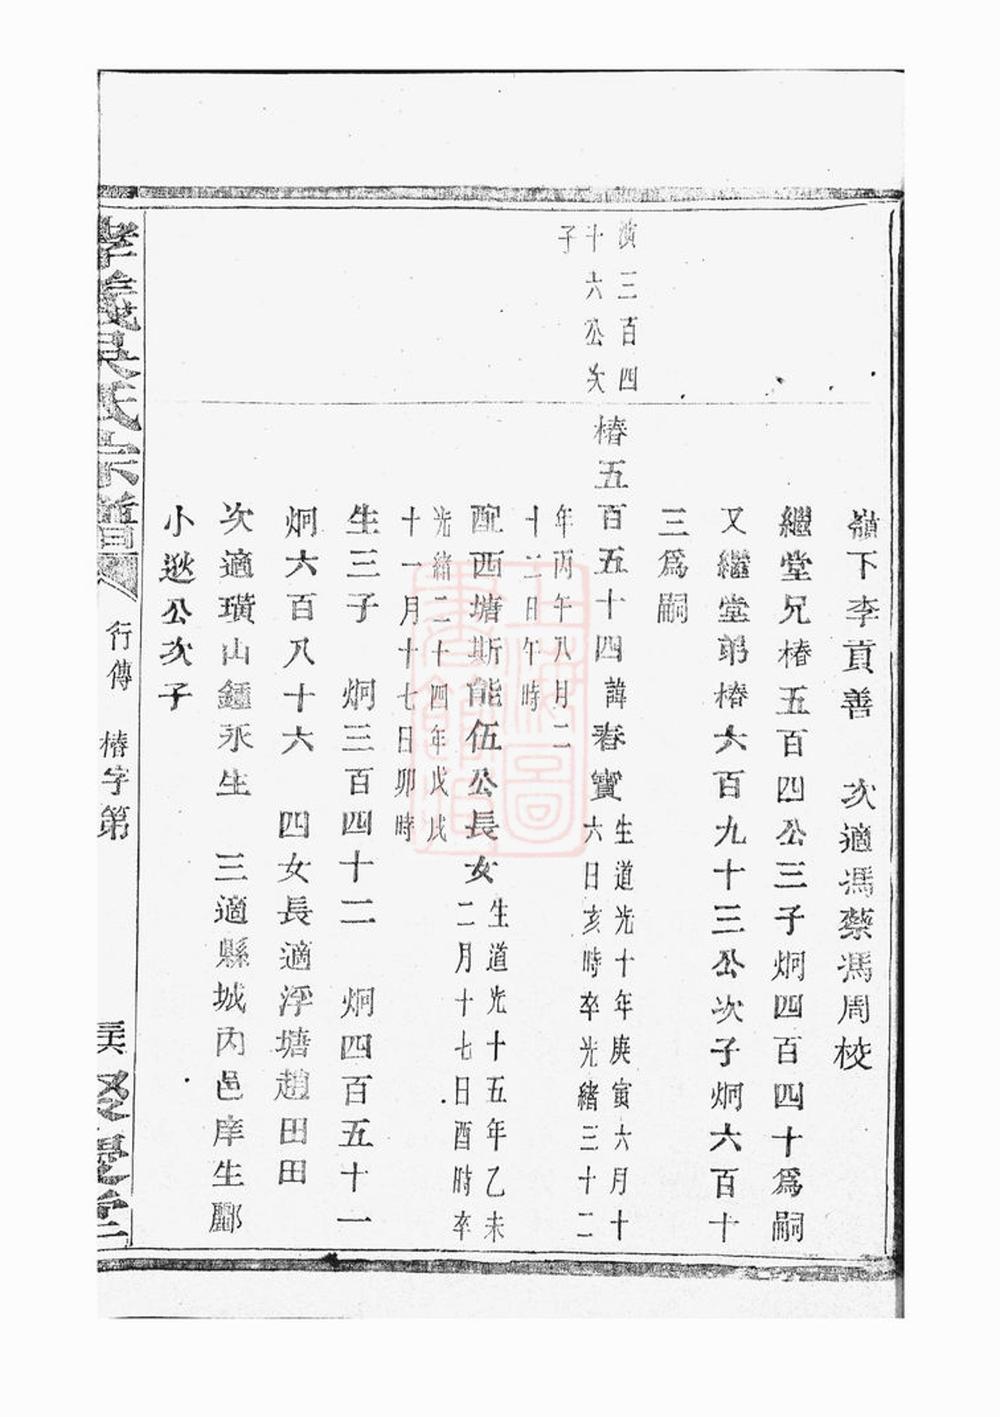 嶺下李貢善　次適馮蔡馮周校
繼堂兄椿五百四公三子炯四百四十爲嗣
又繼堂弟椿六百九十三公次子炯六百十
三爲嗣
演三百四
十六公次
子
椿五百五十四諱春寶
生道光十年庚寅六月十
六日亥時卒光緖三十二
年丙午八月二
十二日午時
配西塘斯能伍公長女
生道光十五年乙未
二月十七日酉時卒
光緖二十四年戊戌
十一月十七日卯時
生三子　炯三百四十二　炯四百五十一
炯六百八十六　四女長適浮塘趙田田
次適璜山鍾永生　三適縣城内邑庠生酈
小逖公次子
孝義吳氏宗譜
行傳　椿字第